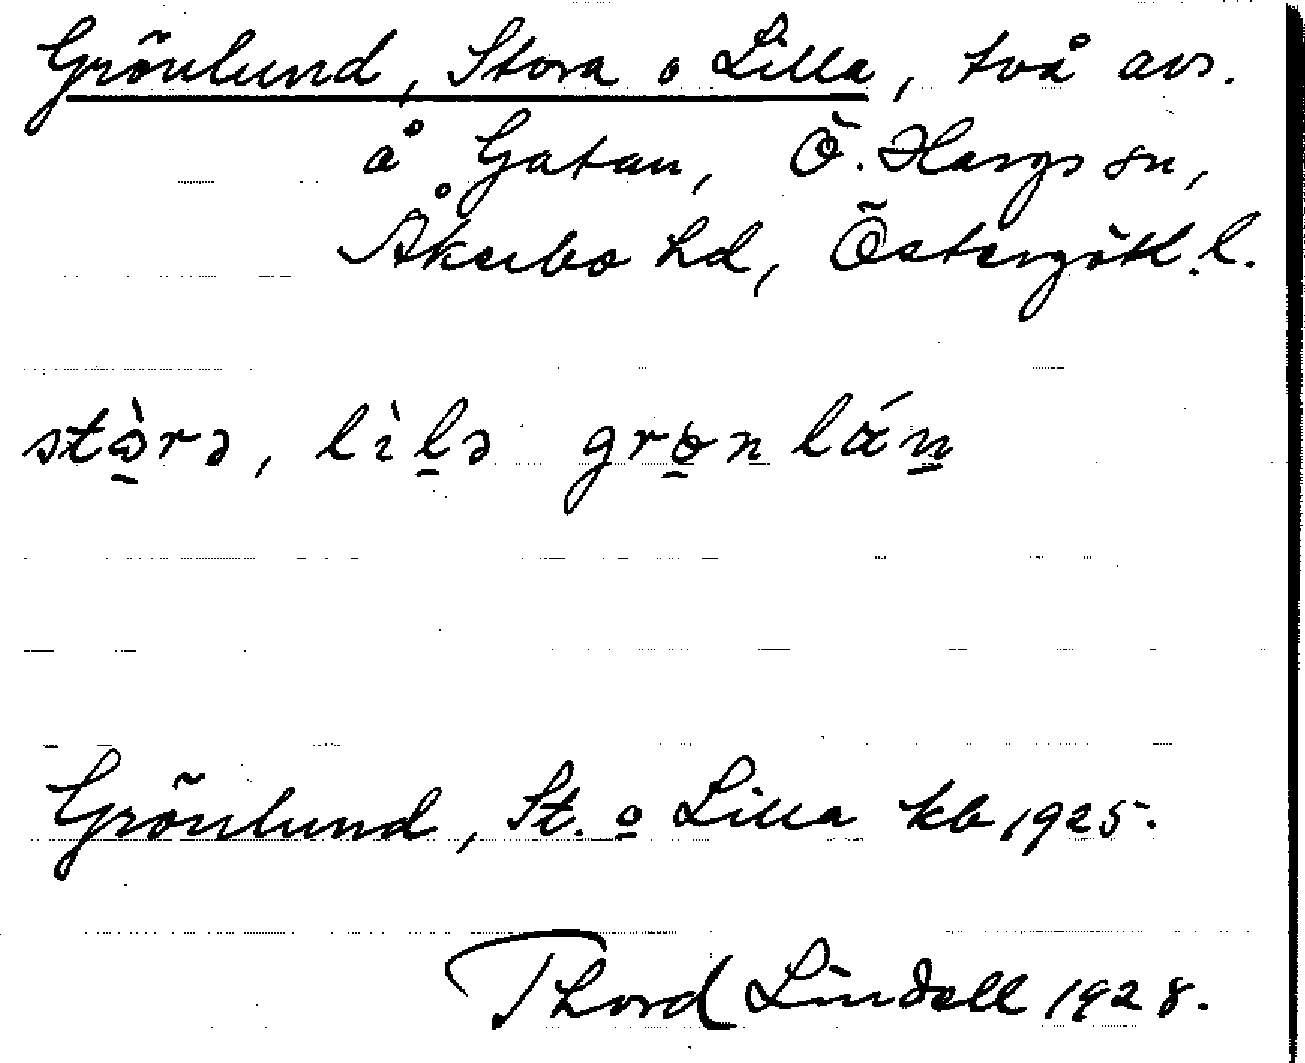 Grönlund, Stora o Lilla, två avs.
å Gatan, Ö. Hargs sn,
Åkerbo hd, Östergötl. l.
stò̠rə, lìl̠ə grɵ̠n lán̠
Grönlund, St. o Lilla kb 1925.
Thord Lindell 1928.